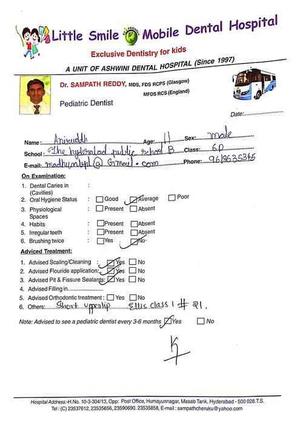 Little Smile Mobile Dental Hospital
Exclusive Dentistry for kids
A UNIT OF ASHWINI DENTAL HOSPITAL (Since 1997)
Dr. SAMPATH REDDY, MDS, FDS RCPS (Glasgow)
MFDS RCS (England)
Pediatric Dentist
Name: Aniruddh Age: 11 Sex: male
School: The hyderabad public school B Class: 6D
E-mail: @gmail.com Phone:
On Examination:
1. Dental Caries in :
(Cavities)
2. Oral Hygiene Status : Good Average Poor
3. Physiological : Present Absent
Spaces
4. Habits : Present Absent
5. Irregular teeth : Present Absent
6. Brushing twice : Yes No
Adviced Treatment:
1. Advised Scaling/Cleaning : Yes No
2. Advised Flouride application: Yes No
3. Advised Pit & Fissure Sealants: Yes No
4. Advised Filling in
5. Advised Orthodontic treatment : Yes No
6. Others: Short upperlip Ellis class 1 # 21.
Note: Advised to see a pediatric dentist every 3-6 months Yes No
Hospital Address:-H.No. 10-3-304/13, Opp: Post Office, Humayunnagar, Masab Tank, Hyderabad - 500 028.T.S.
Tel: (C) 23537612, 23535656, 23590690. 23535858, E-mail: sampathcheruku@yahoo.com